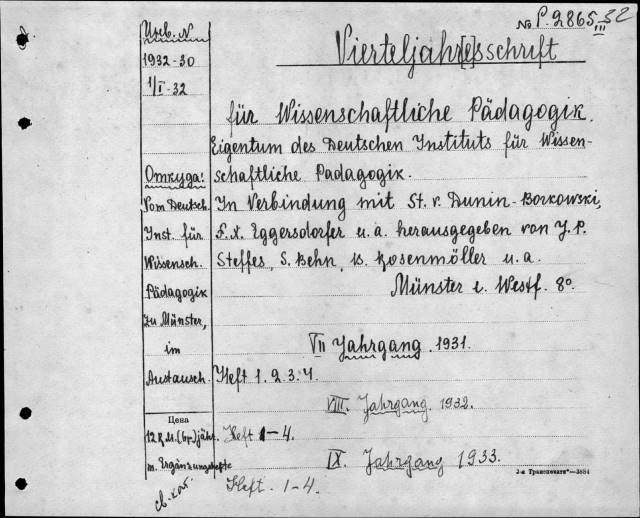 No P. 2865 32
III
Инв. N
Vierteljahr[e]sschrift
1932-30
1/I-32
für Wissenschaftliche Pädagogik.
Eigentum des Deutschen Instituts für Wissen-
Откуда:
schaftliche Padagogik.
Vom Deutsch.
In Verbindung mit St. v. Dunin-Borkowski,
Inst. für
F. X. Eggersdorfer u. a. herausgegeben von J. P.
Wissensch.
Steffes, S. Behn, B. Rosenmöller u. a.
Pädagogik
Münster i. Westf. 8o.
zu Münster,
im
VII Jahrgang. 1931.
Austausch.
Heft 1. 2. 3. 4.
VIII. Jahrgang. 1932.
Цена
12 R.M. (бр.) jähr.
Heft 1-4.
m. Ergänzungshefte
IX. Jahrgang 1933.
3-я Транспечати"—3884
св. кат.
Heft. 1-4.